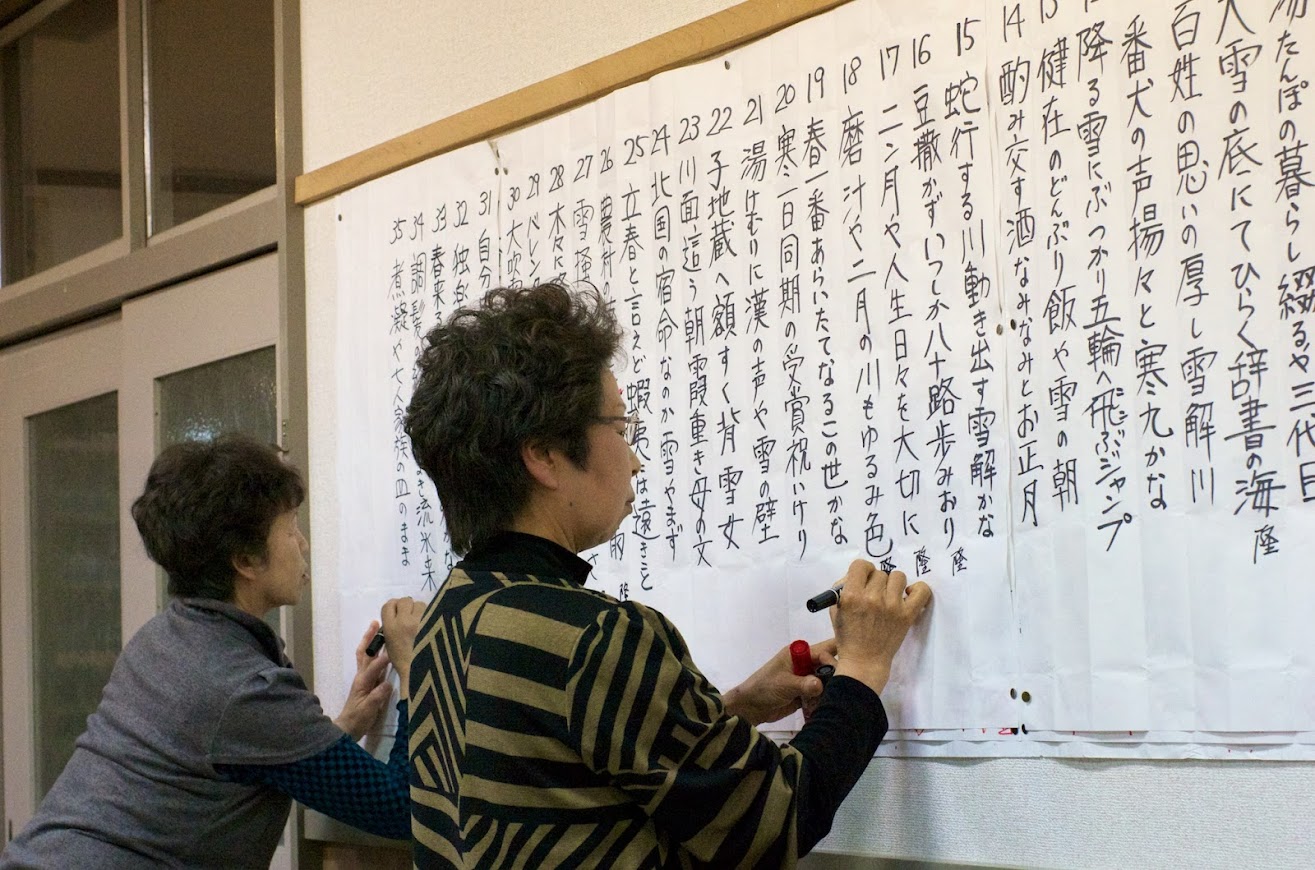 湯たんぽの暮らし綴るや三代目
大雪の底にてひらく辞書の海 隆
百姓の思いの厚し雪解川
番犬の声揚々と寒九かな
降る雪にぶつかり五輪へ飛ぶジャンプ
健在のどんぶり飯や雪の朝
14 酌み交す酒なみなみとお正月
15 蛇行する川動き出す雪解かな
16 豆撒かずいつしか八十路歩みおり 隆
17 二ン月や人生日々を大切に 隆
18 磨汁や二月の川もゆるみ色 隆
19 春一番あらいたてなるこの世かな
20 寒一日同期の受賞祝いけり
21 湯けむりに漢の声や雪の壁
22 子地蔵へ額すく背雪女
23 川面這う朝霞重き母の文
24 北国の宿命なのか雪やまず
25 立春と言えど蝦夷には遠きこと
26 農村の
27 雪掻
28 木々に
29 バレン
30 大吹
31 自分
32 独楽
33 春来る
34 調髪の 流氷来
35 煮凝や七人家族の皿のまま